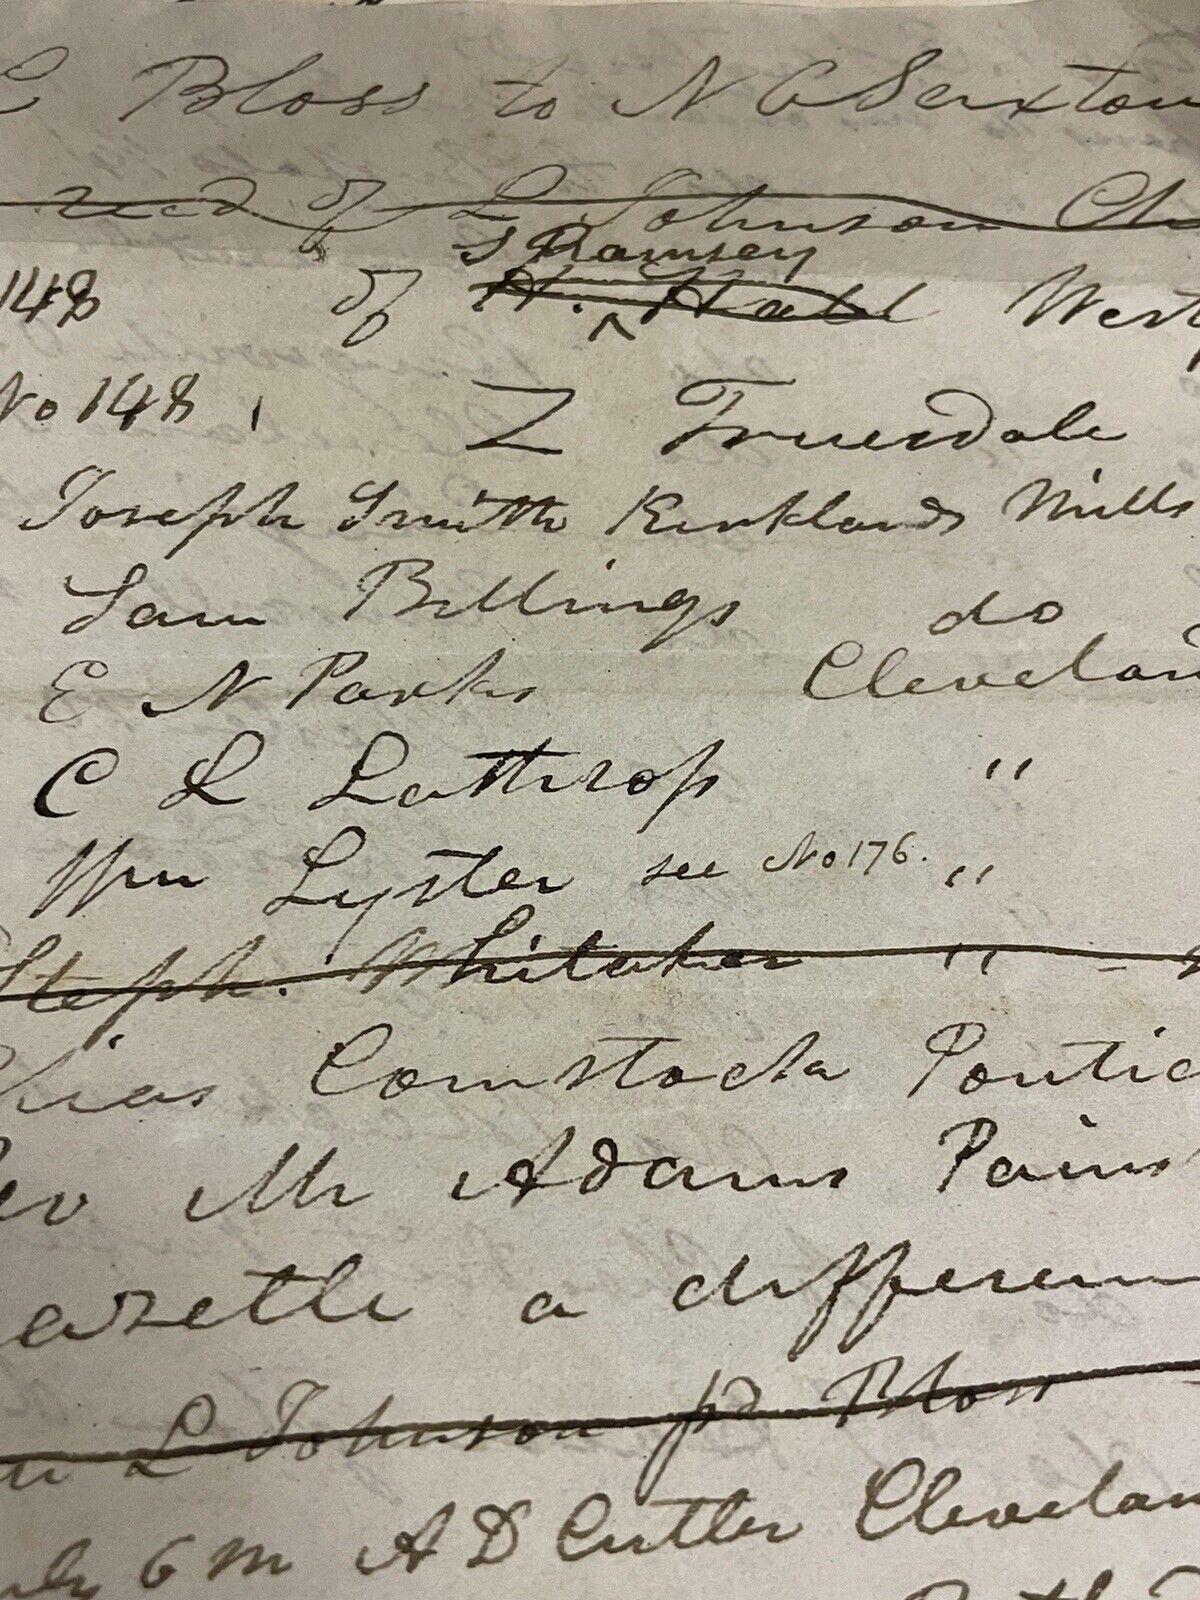 Bloss to N C Sexton
recd of L Johnson
S Ramsey
148 of H. Hall West
No 148 Z Truesdale
Joseph Smith Kirklands Mills
Sam Billings do
E N Parks Clevelan
C L Lathrop "
Wm Lyster see No 176. "
Steph. Whitaker "
Comstock Pontic
Mr Adams Pains
a differen
L Johnson pd Bloss
6 m A D Cutler Clevelan